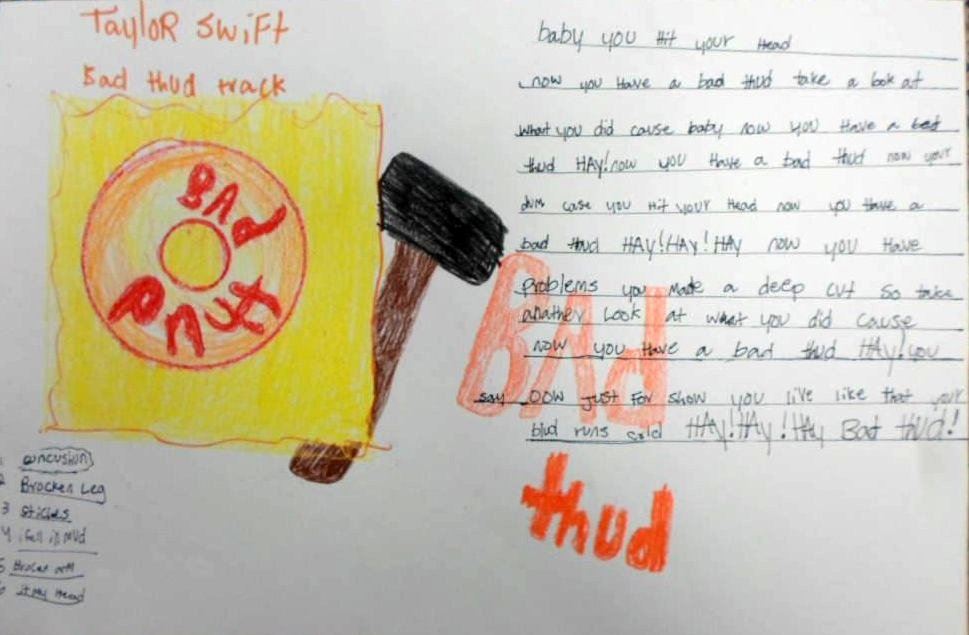 TaylOR SWift
Bad thud track
BAd
thUd
1 concushun
2 Brocken Leg
3 Stiches
4 i fell in MUd
5 Brocen arm
6 it My Head
BAd
thud
baby you Hit your Head
now you Have a bad thud take a look at
what you did cause baby now you Have a bed
thud HAY! now you Have a bad thud now your
dum case you Hit your Head now you Have a
bad thud HAY! HAY! HAY now you Have
problems you Made a deep cut So take
anather Look at what you did cause
now you Have a bad thud HAy! you
say OOW just For show you live like that your
blud runs cold HAy! HAy! HAy Bad thud!